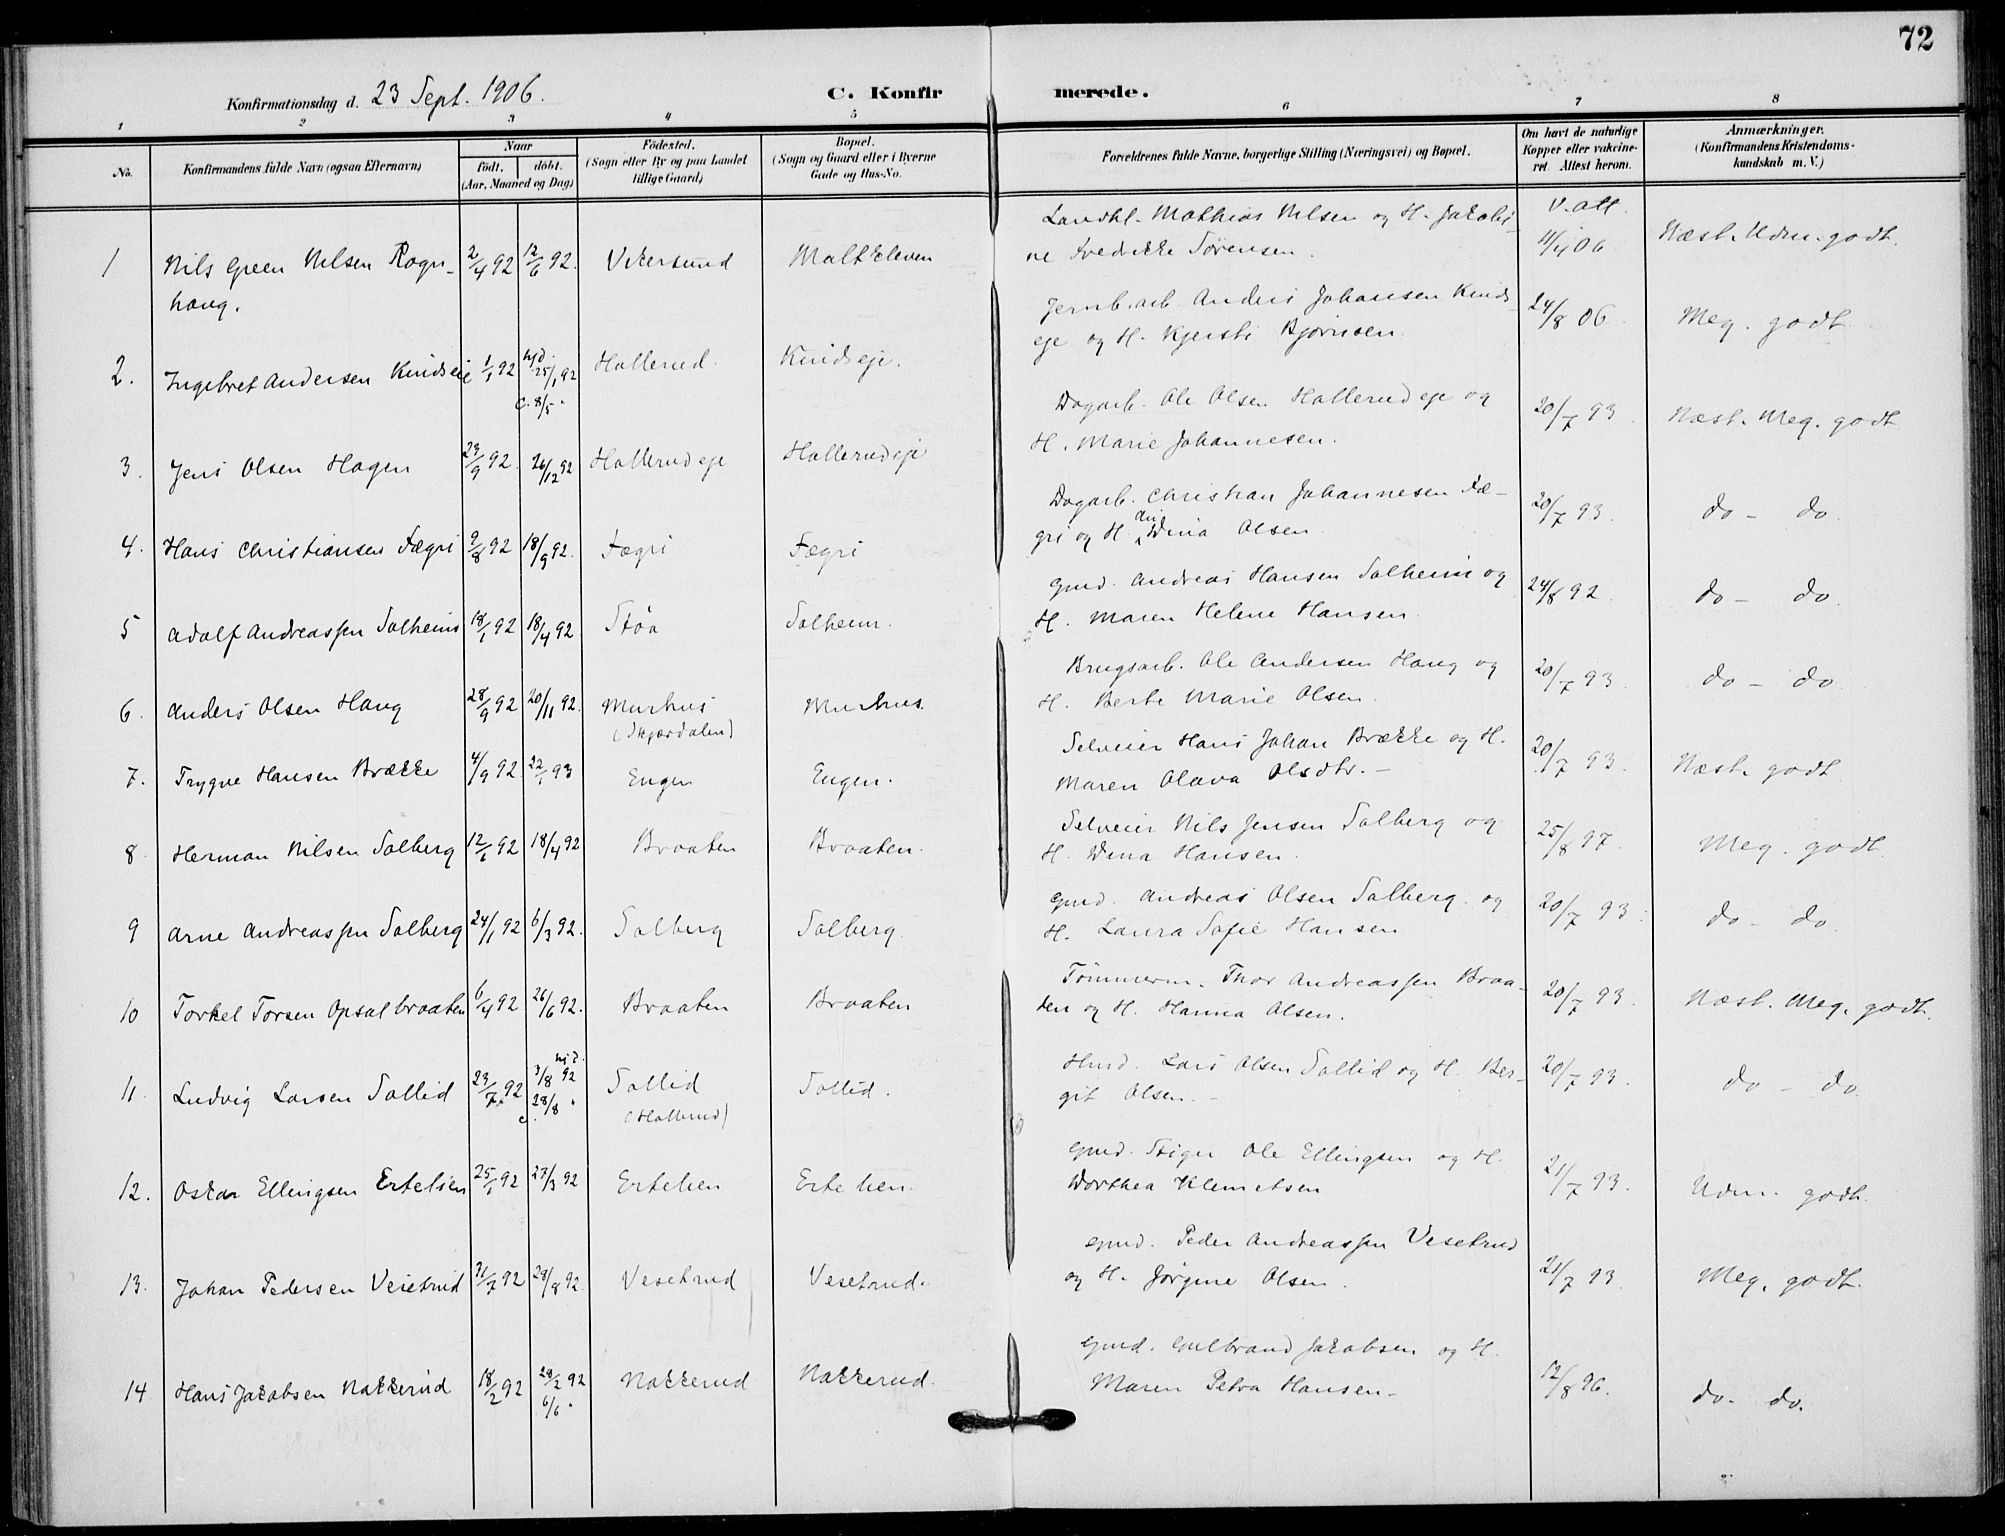 72
Konfirmationsdag d. 23 Sept. 1906.
C. Konfir merede.
1 2 3 4 5 6 7 8
No.
Konfirmandens fulde Navn (ogsaa Efternavn)
Naar
født. døbt.
(Aar, Maaned og Dag)
Fødested.
(Sogn eller By og paa Landet
tillige Gaard)
Bopæl.
(Sogn og Gaard eller i Byerne
Gade og Hus-No.
Forældrenes fulde Navne, borgerlige Stilling (Næringsvei) og Bopæl.
Om havt de naturlige
Kopper eller vakcine-
ret. Attest herom.
Anmærkninger.
(Konfirmandens Kristendoms-
kundskab m. V.)
Landhl. Mathias Nilsen og H. Jakobi- v. att.
1 Nils Green Nilsen Rogn- 2/4 92 12/6 92. Vikersund Maltkleven ne Fredrikke Sørensen. 11/4 06 Næst. Udm. godt.
haug.
Jernb. arb. Anders Johansen Kinds-
2. Ingebret Andersen Kindseie 1/1 92 hjd. 25/1 92 Hollerud. Kindseje. eje og H. Kjersti Bjørnsen. 24/8 06 Meg. godt.
c. 8/5 "
Dagarb. Ole Olsen Hollerudeje og
3. Jens Olsen Hagen 29/9 92. 26/12 92 Hollerudeje Hollerudeje H. Marie Johannesen. 20/7 93 Næst. Meg. godt
Dagarb. Christian Johannesen Fæ-
4. Hans Christiansen Fægri 9/8 92 18/9 92. Fægri Fægri gri og H. Dina Olsen 20/7 93. do - do
Gmd. Andreas Hansen Solheim og
5 Adolf Andreassen Solheim 18/1 92 18/4 92 Støa Solheim. H. Maren Helene Hansen. 24/8 92. do - do
Brugsarb. Ole Andersen Haug og
6. Anders Olsen Haug 28/9 92 20/11 92. Murhus Murhus. H. Berte Marie Olsen. 20/7 93. do - do
(Skjærdalen)
Selveier Hans Johan Brække og H.
7. Trygve Hansen Brække 4/9 92. 22/1 93 Engen Engen. Maren Olava Olsdtr. - 20/7 93. Næst. godt
Selveier Nils Jensen Solberg og
8 Herman Nilsen Solberg 12/1 92 18/4 92 Braaten Braaten. H. Dina Hansen. 25/8 97. Meg. godt.
Gmd. Andreas Olsen Solberg og
9 Arne Andreassen Solberg 24/1 92 6/3 92. Solberg Solberg. H. Laura Sofie Hansen 20/7 93. do - do.
Tømmerm. Thor Andreassen Braa-
10 Torkel Torsen Opsalbraaten 6/4 92 26/6 92. Braaten Braaten ten og H. Hanna Olsen. 20/7 93. Næst. Meg. godt.
hjd.
Hmd. Lars Olsen Sollid og H. Ber-
11. Ludvig Larsen Sollid 23/7 92 3/8 92 Sollid Sollid. git Olsen. - 20/7 93. do - do
c. 28/8 " (Hollerud)
Gmd. Stiger Ole Ellingsen og H.
12. Oskar Ellingsen Ertelien 25/1 92 27/3 92 Ertelien Ertelien. Dorthea Klemetsen 21/7 93. Udm. godt.
Gmd. Peder Andreassen Vesetrud
13. Johan Pedersen Vesetrud 31/7 92 28/8 92. Vesetrud Vesetrud. og H. Jørgine Olsen. 21/7 93 Meg. godt.
Gmd. Gulbrand Jakobsen og H.
14 Hans Jakobsen Nakkerud 18/2 92 29/2 92 Nakkerud Nakkerud. Maren Petra Hansen - 12/8 96. do - do.
6/6 "